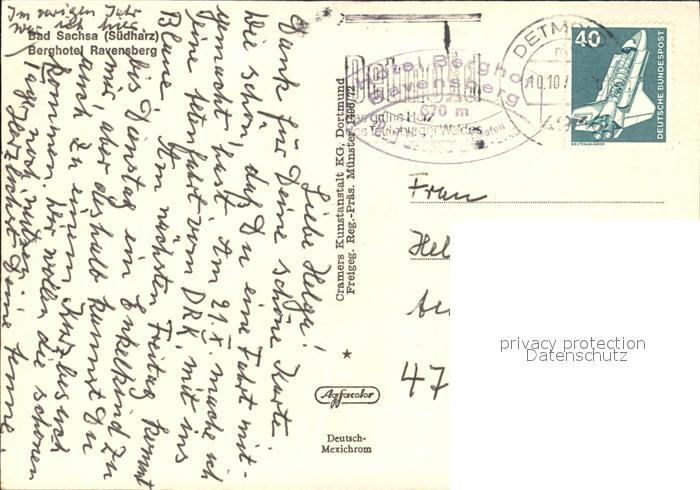 Im vorigen Jahr
war ich hier
Bad Sachsa (Südharz)
Berghotel Ravensberg
Liebe Helga!
Dank für Deine schöne Karte.
Wie schön, daß Du eine Fahrt mit-
gemacht hast. Am 21.X. mache ich
eine Fahrt vom DRK mit ins
Blaue. Am nächsten Freitag kommt
bis Dienstag ein Enkelkind zu
mir, aber deshalb kannst Du
auch zu einem Kurzbesuch
kommen. Wir wollen die schönen
Tage noch nutzen
Herzlichst Deine Änne
Cramers Kunstanstalt KG, Dortmund
Freigeg. Reg.-Präs. Münster 1496/72
Agfacolor
Deutsch-
Mexichrom
Hotel Berghof
Ravensberg
670 m
Detmold
des Teutoburger Waldes
DETMOLD
10.10.
40
DEUTSCHE BUNDESPOST
WELTRAUMLABOR
Frau
Hel
47
privacy protection
Datenschutz